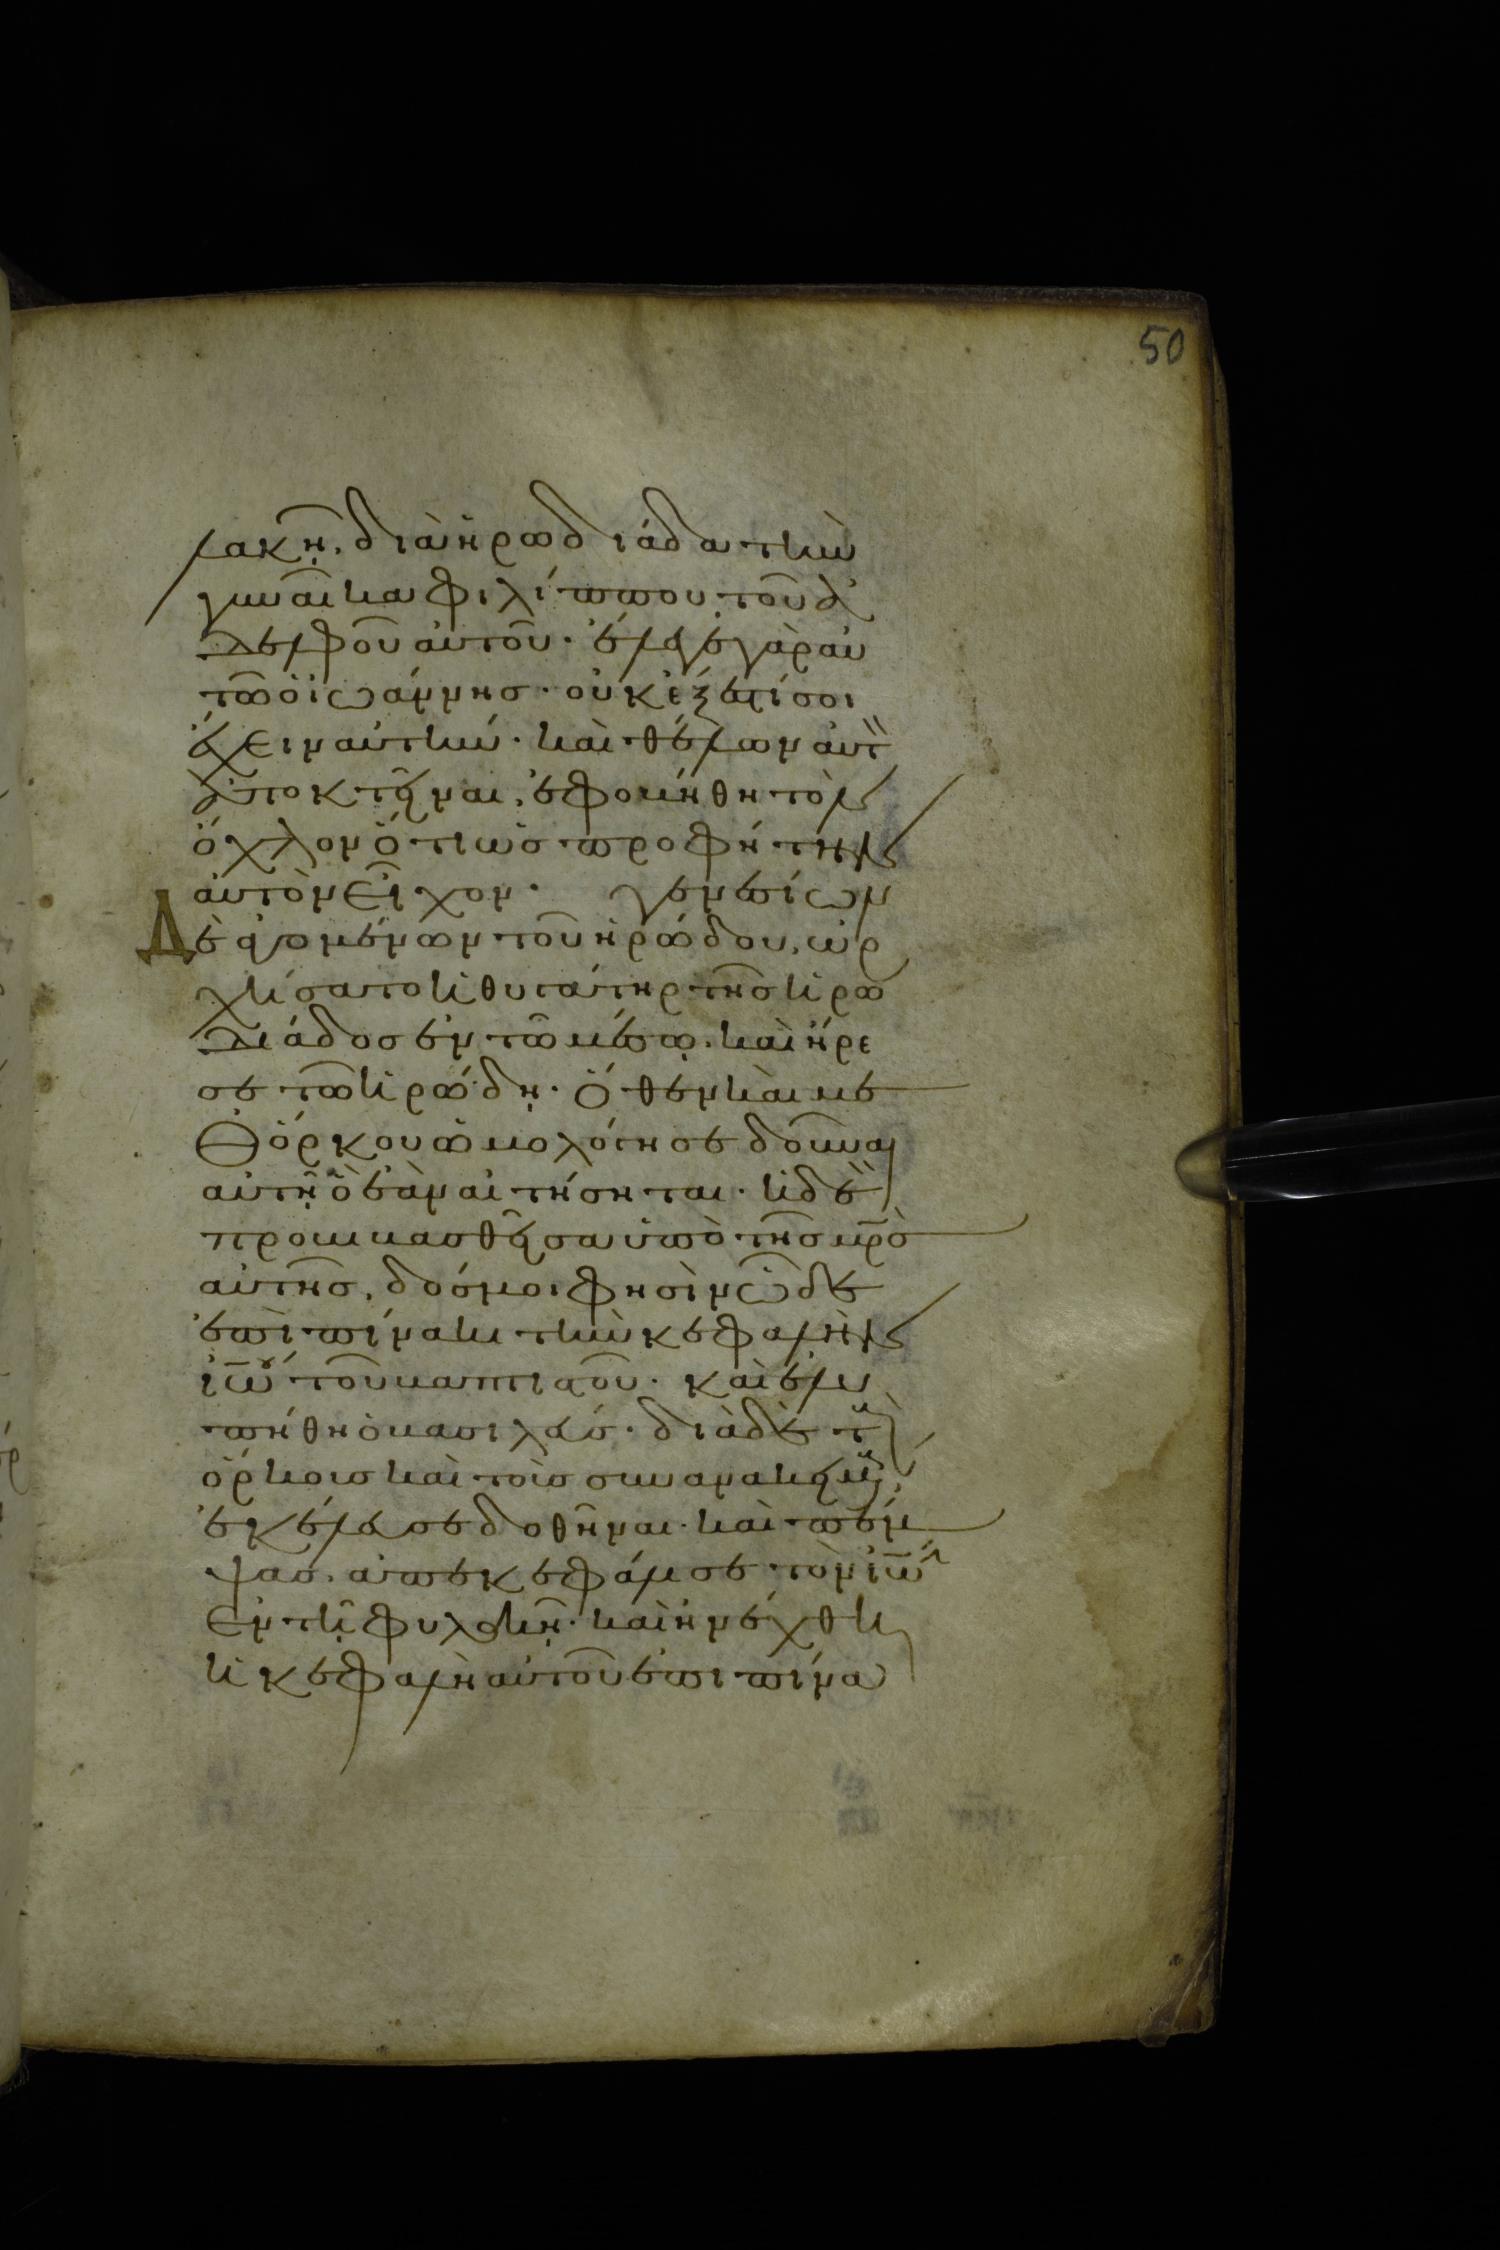 50
λακῇ. διὰ ἡρωδιάδα τὴν
γυναῖκα φιλίππου τοῦ ἀ
δελφοῦ αὐτοῦ. ἔλεγε γὰρ αὐ
τῶ ὁ ἰωάννησ. οὐκ ἔξεστί σοι
ἔχειν αὐτήν. καὶ θέλων αὐτ
ἀποκτεῖναι, ἐφοβήθη τὸν
ὄχλον ὅτι ὡσ προφήτην
αὐτὸν εἶχον. γενεσίων
Δὲ ἀγομένων τοῦ ἡρώδου, ὠρ
χήσατο ἡ θυγάτηρ τῆσ ἡρω
διάδοσ ἐν τῶ μέσω. καὶ ἤρε
σε τῶ ἡρώδῃ. ὅθεν καὶ με
θ ὅρκου ὡμολόγησε δοῦναι
αὐτῇ ὃ ἐὰν αἰτήσηται. ἡ δὲ
προβιβασθεῖσα ὑπὸ τῆσ μρσ
αὐτῆσ. δόσ μοι φησὶν ὧδε
ἐπὶ πίνακι τὴν κεφαλὴν
ἰω τοῦ βαπτιστοῦ. καὶ ἐλυ
πήθη ὁ βασιλεύσ. διὰ δὲ τ
ὅρκουσ καὶ τοὺσ συνανακειμ
ἐκέλευσε δοθῆναι. καὶ πέμ
ψασ. ἀπεκεφάλισε τὸν ἰω
ἐν τῇ φυλακῇ. καὶ ἠνέχθη
ἡ κεφαλὴ αὐτοῦ ἐπι πίνα